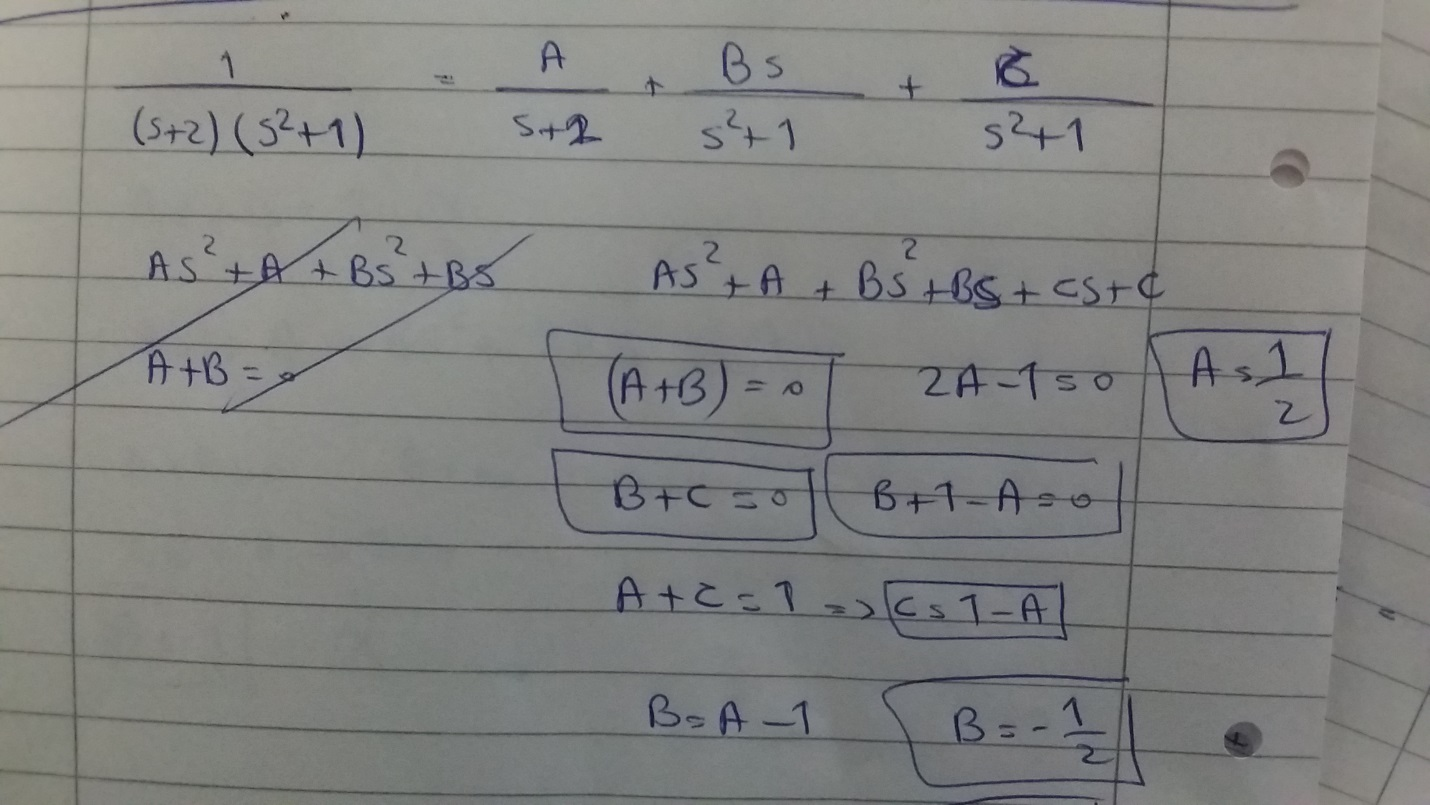 1/((s+2)(s²+1)) = A/(s+2) + Bs/(s²+1) + C/(s²+1)
As²+A+Bs²+Bs
As²+A+Bs²+Bs+Cs+C
A+B=0
(A+B)=0 2A-1=0 A=1/2
B+C=0 B+1-A=0
A+C=1 => C=1-A
B=A-1 B=-1/2